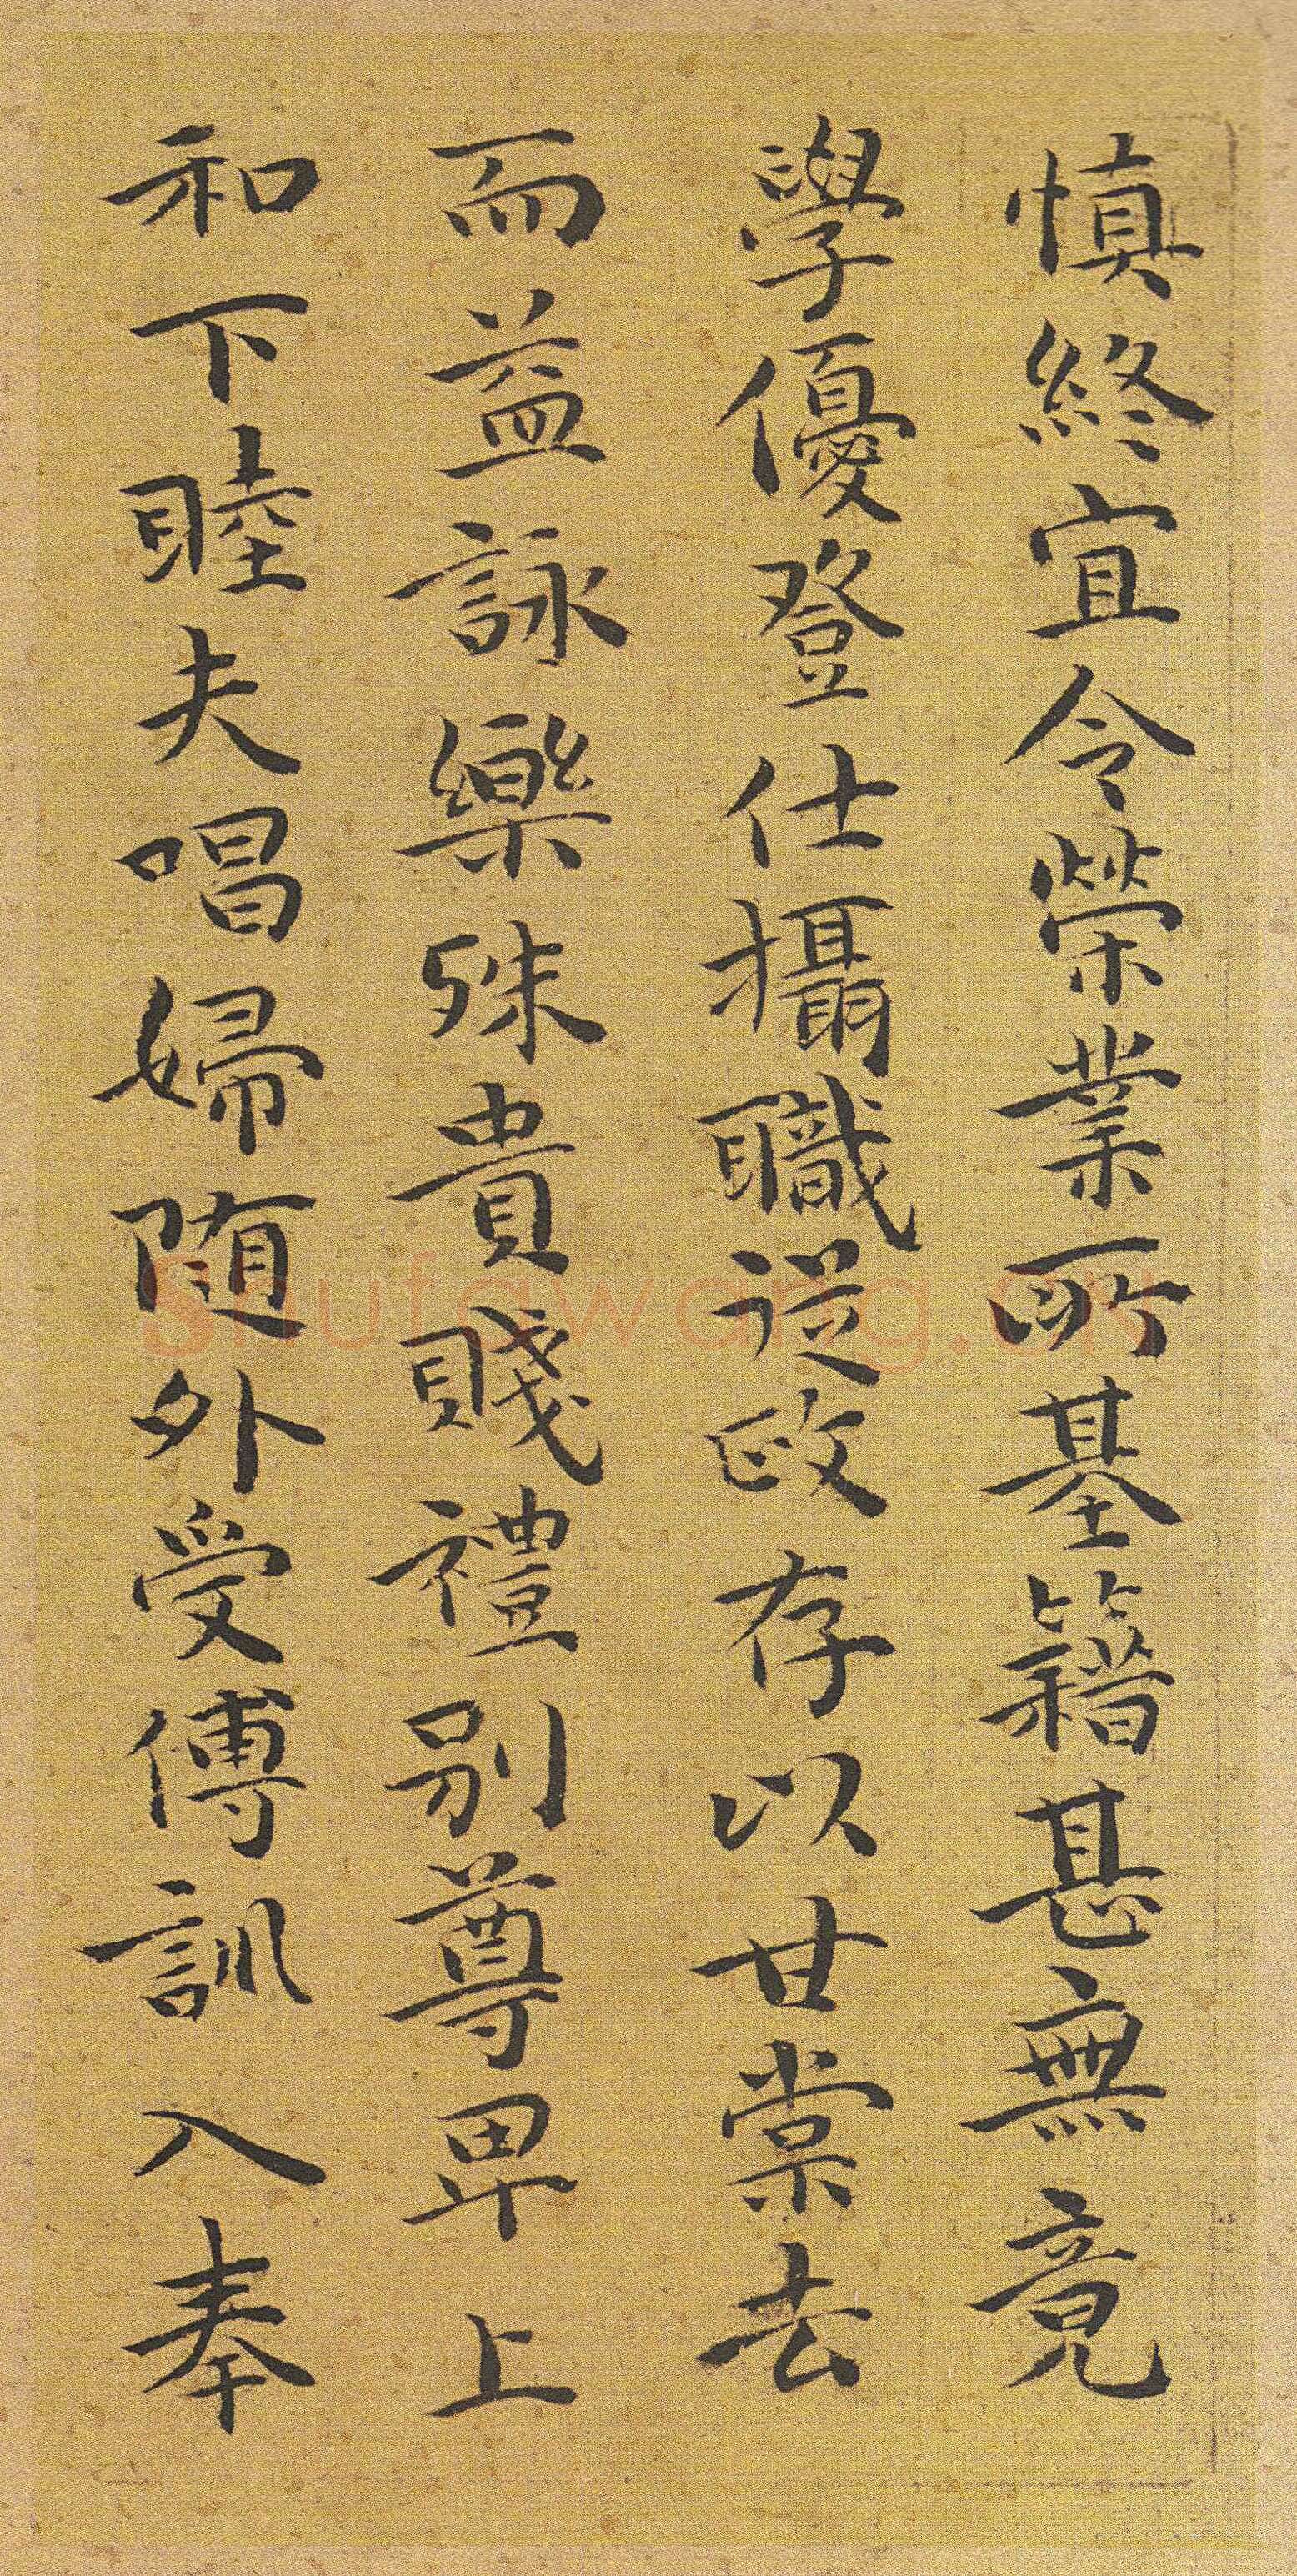 慎終宜令榮業所基籍甚無竟
學優登仕攝職從政存以甘棠去
而益詠樂殊貴賤禮別尊卑上
和下睦夫唱婦随外受傅訓入奉
Shufawang.cn